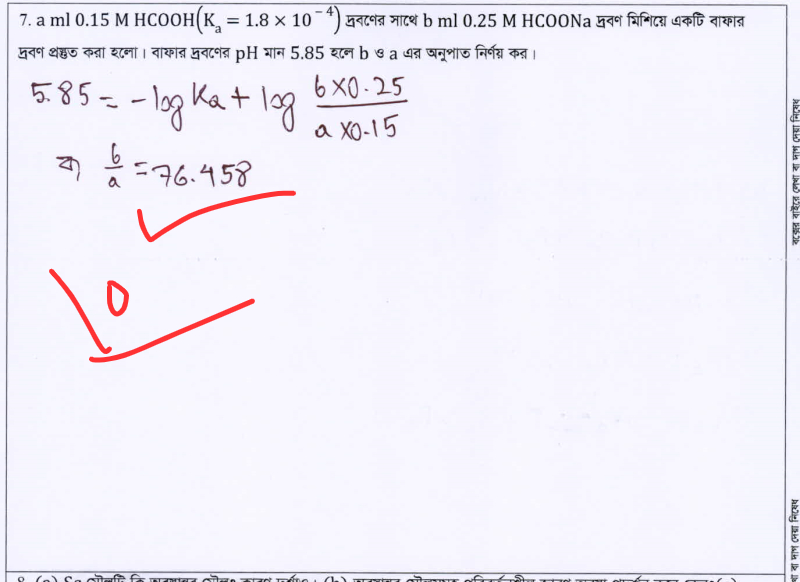 7. a ml 0.15 M HCOOH(Kₐ = 1.8 × 10⁻⁴) দ্রবণের সাথে b ml 0.25 M HCOONa দ্রবণ মিশিয়ে একটি বাফার
দ্রবণ প্রস্তুত করা হলো। বাফার দ্রবণের pH মান 5.85 হলে b ও a এর অনুপাত নির্ণয় কর।
5.85 = -log Ka + log (b×0.25)/(a×0.15)
বা, b/a = 76.458
0
বক্সের বাইরে লেখা বা দাগ দেয়া নিষেধ
বা দাগ দেয়া নিষেধ